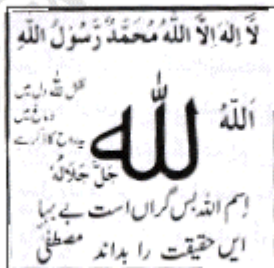 لَا إِلٰهَ إِلَّا اللّٰهُ مُحَمَّدٌ رَّسُوْلُ اللّٰهِ
اَللّٰهُ
اللّٰه
دل میں
دماغ میں
جَلَّ جَلَالُهٗ
اِسم اللہ بس گراں است بے بہا
ایں حقیقت را بداند مصطفٰیؐ